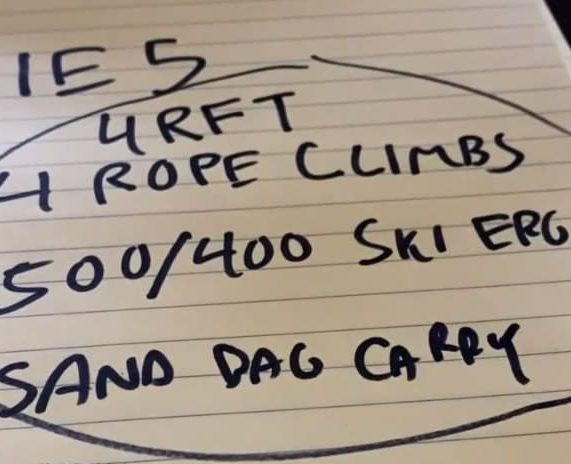 IE 5
4 RFT
4 ROPE CLIMBS
500/400 SKI ERG
SAND BAG CARRY